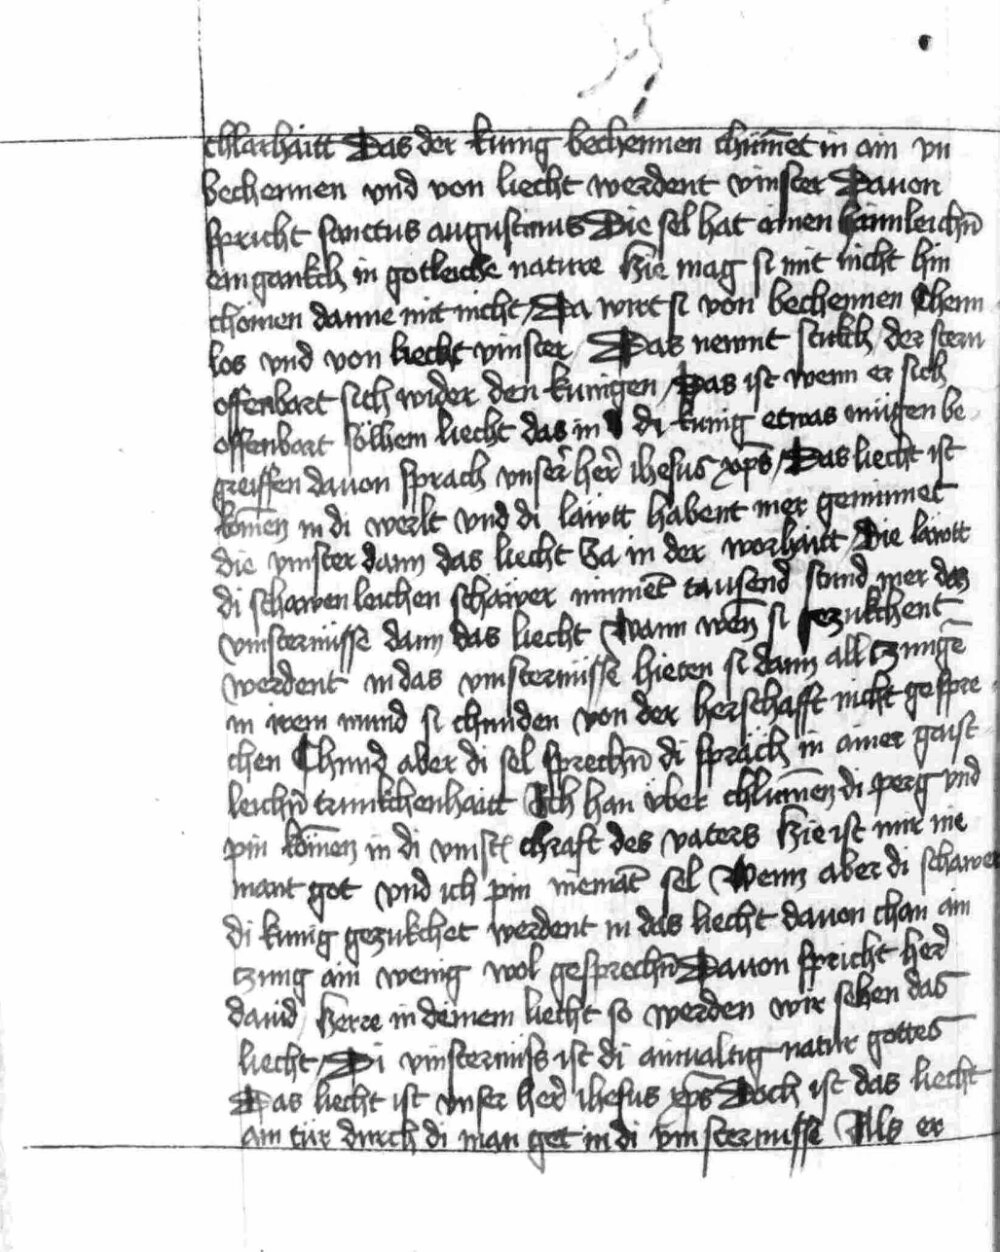 chlarhaitt Das der kunig bechennen chumet in ain vn
bechennen vnd von liecht werdent vinster Dauon
spricht sanctus augustinus Die sel hat ainen haimleichn̄
eingankch in gotleiche nature Hie mag si mit nicht hin
chomen danne mit nicht / Da wirt si von bechennen Chenn
los vnd von liecht vinster / Das newnt stukch / der stern
offenbart sich wider den kunigen / Das ist wenn er sich
offenbart sölhem liecht das in di kunig etwas mügen be
greiffen dauon sprach vnser her̄ ihesus xp̄s / Das liecht ist
kōmen in di werlt vnd di läwtt habent mer geminnet
die vinster dann das liecht Ja in der worhaitt / Die läwtt
di schawenleichen schawer minnēt tausend stund mer das
vinsternisse dann das liecht Wann wen̄ si gezukchent
werdent in das vinsternisse hieten si dann all tzungē
in irem mund si chunden von der herschafft nicht gespre
chen Chund aber di sel sprechn̄ di spräch in ainer gaist
leichn̄ trunkchenhaitt Ich han vber chlūmen di perg vnd
pin kōmen in di vinst̄ chraft des vaters Hie ist mir nie
mant got vnd ich pin niemāt sel Wenn aber di schawer
di kunig gezukchet werdent in das liecht dauon chan ain
tzung ain wenig wol gesprechn̄ Dauon spricht herd
dauid / Herre in deinem liecht so werden wir sehen das
liecht / Di vinsterniss ist di ainualtig natur gottes
Das liecht ist vnser herd ihesus xp̄s Doch ist das liecht
ain tür durch di man get in di vinsternisse Als er